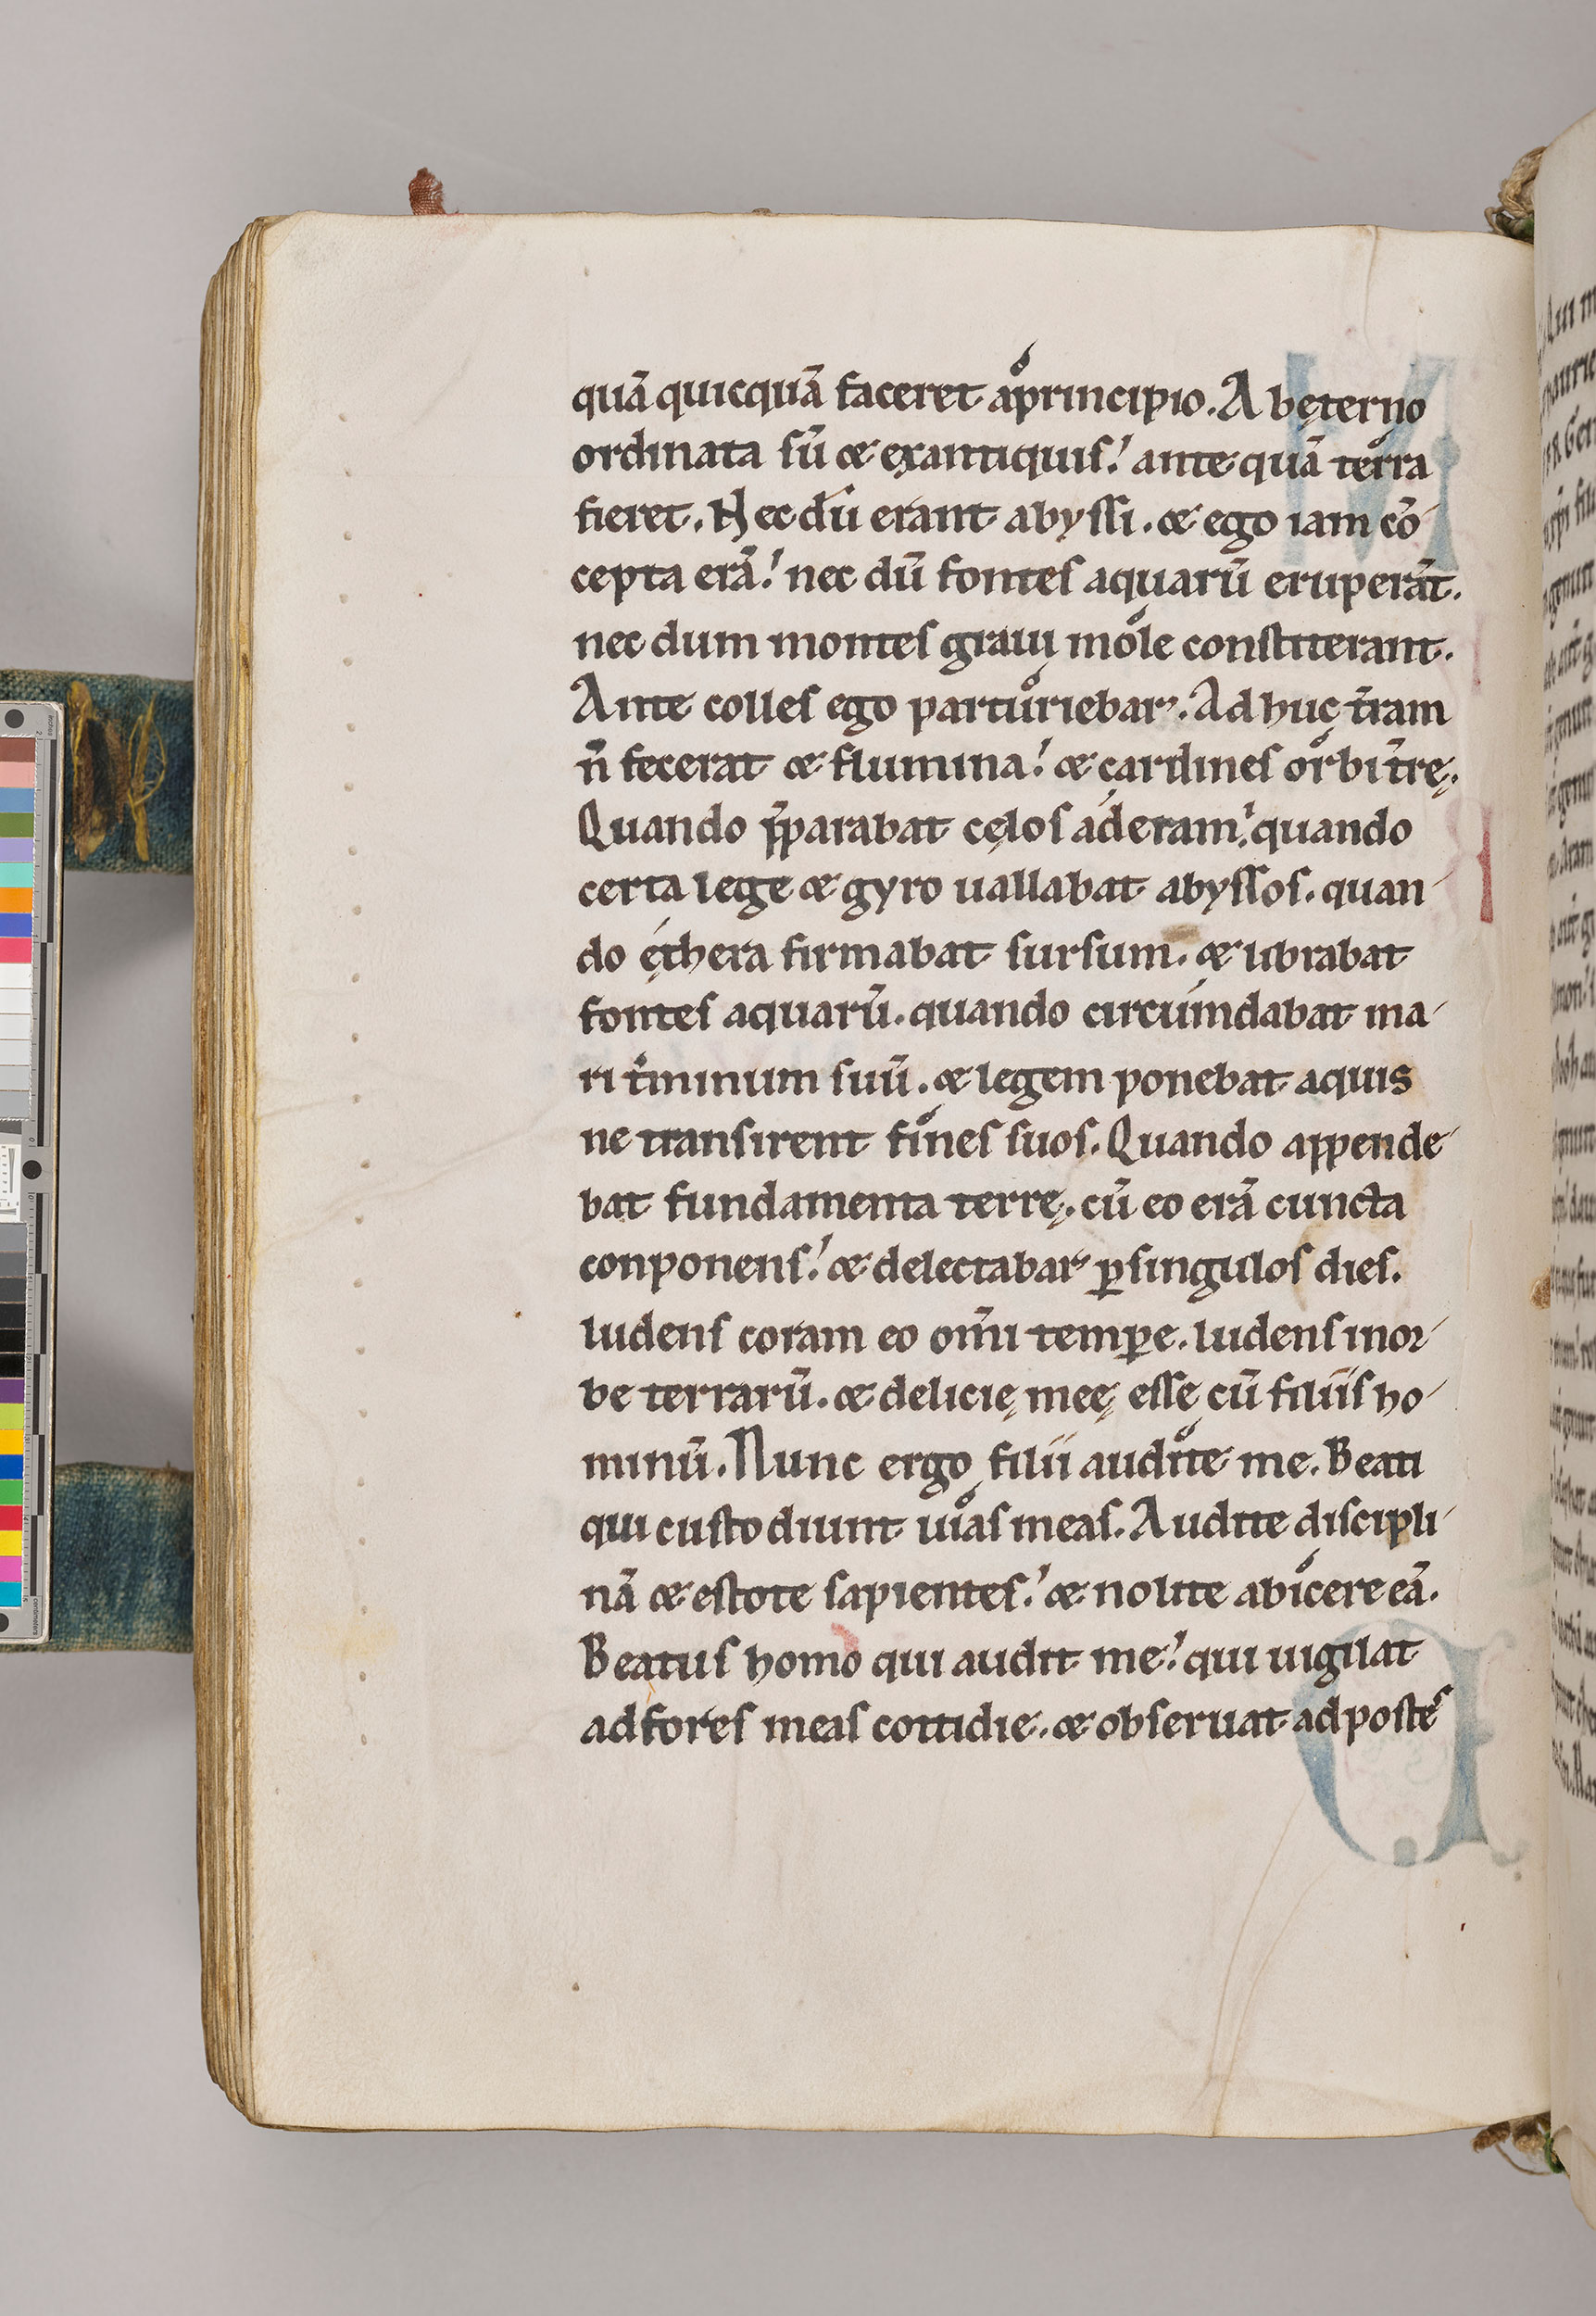 quā quicquā faceret a principio. Ab ęterno
ordinata sū & ex antiquis! ante quā terra
fieret. Nec dū erant abyssi. & ego iam cō-
cepta erā! nec dū fontes aquarū eruperāt.
nec dum montes graui mole constiterant.
Ante colles ego parturiebar. Ad huc t̄ram
n̄ fecerat & flumina! & cardines orbi t̄rę.
Quando p̄parabat cęlos aderam! quando
certa lege & gyro uallabat abyssos. quan-
do ęthera firmabat sursum. & librabat
fontes aquarū. quando circumdabat ma-
ri t̄minum suū. & legem ponebat aquis
ne transirent fines suos. Quando appende-
bat fundamenta terrę. cū eo erā cuncta
conponens! & delectabar ꝑ singulos dies.
ludens coram eo om̄i temꝑe. ludens in or-
be terrarū. & delicię meę esse cū filiis ho-
minū. Nunc ergo filii audite me. Beati
qui custodiunt uias meas. Audite discipli-
nā & estote sapientes! & nolite abicere eā.
Beatus homo qui audit me! qui uigilat
ad fores meas cottidie. & obseruat ad postes